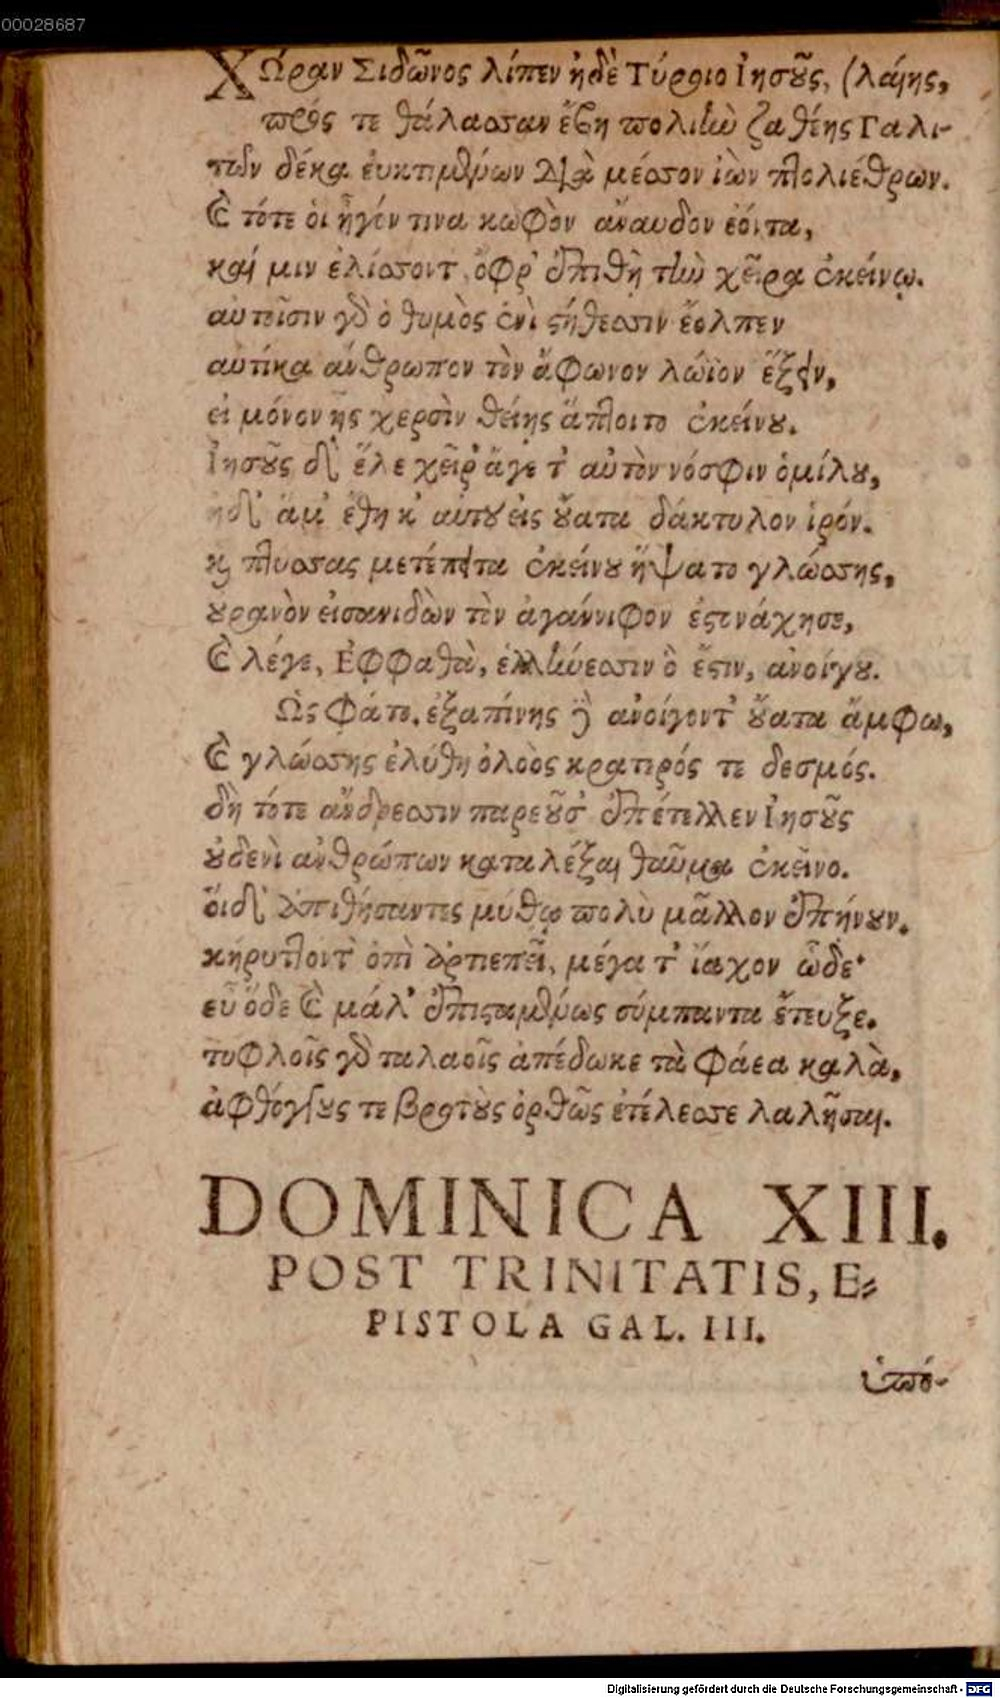 00028687
ΧΩραν Σιδῶνος λίπεν ἠδὲ Τύροιο Ἰησοῦς, (λαίης,
πρός τε θάλασσαν ἔβη πολιὴν ζαθέης Γαλι-
τῶν δέκα ἐυκτιμένων διὰ μέσσον ἰὼν πτολιέθρων.
καὶ τότε οἱ ἦγόν τινα κωφὸν ἄναυδον ἐόντα,
καί μιν ἐλίσσοντ, ὄφρ' ἐπιθῇ τὴν χεῖρα ἐκείνῳ.
αὐτοῖσιν γὰρ ὁ θυμὸς ἐνὶ στήθεσσιν ἔολπεν
αὐτίκα ἄνθρωπον τὸν ἄφωνον λώϊον ἕξειν,
εἰ μόνον ᾗς χερσὶν θείῃς ἅπτοιτο ἐκείνου.
Ἰησοῦς δ' ἕλε χεῖρ' ἄγε τ' αὐτὸν νόσφιν ὁμίλου,
ἠδ' ἅμ' ἔθηκ' αὐτοῦ εἰς οὔατα δάκτυλον ἱρόν.
καὶ πτύσσας μετέπειτα ἐκείνου ἥψατο γλώσσης,
οὐρανὸν εἰσανιδὼν τὸν ἀγάννιφον ἐστενάχησε,
καὶ λέγε, Ἐφφαθὰ, ἑλλήνεσσιν ὅ ἐστιν, ἀνοίγου.
Ὣς φάτο, ἐξαπίνης δὲ ἀνοίγοντ' οὔατα ἄμφω,
καὶ γλώσσης ἐλύθη ὀλοὸς κρατερός τε δεσμός.
δὴ τότε ἄνδρεσσιν παρεοῦσ' ἐπέτελλεν Ἰησοῦς
οὐδενὶ ἀνθρώπων καταλέξαι θαῦμα ἐκεῖνο.
οἵδ' ἀπιθήσαντες μύθῳ πολὺ μᾶλλον ἐπῄνουν.
κηρύττοντ' ὀπὶ ἀρτιεπεῖ, μέγα τ' ἴαχον ὧδε·
εὖ ὅδε καὶ μάλ' ἐπισταμένως σύμπαντα ἔτευξε.
τυφλοῖς γὰρ ταλαοῖς ἀπέδωκε τὰ φάεα καλὰ,
ἀφθόγγους τε βροτοὺς ὀρθῶς ἐτέλεσσε λαλῆσαι.
DOMINICA XIII.
POST TRINITATIS, E-
PISTOLA GAL. III.
ὑπό-
Digitalisierung gefördert durch die Deutsche Forschungsgemeinschaft - DFG